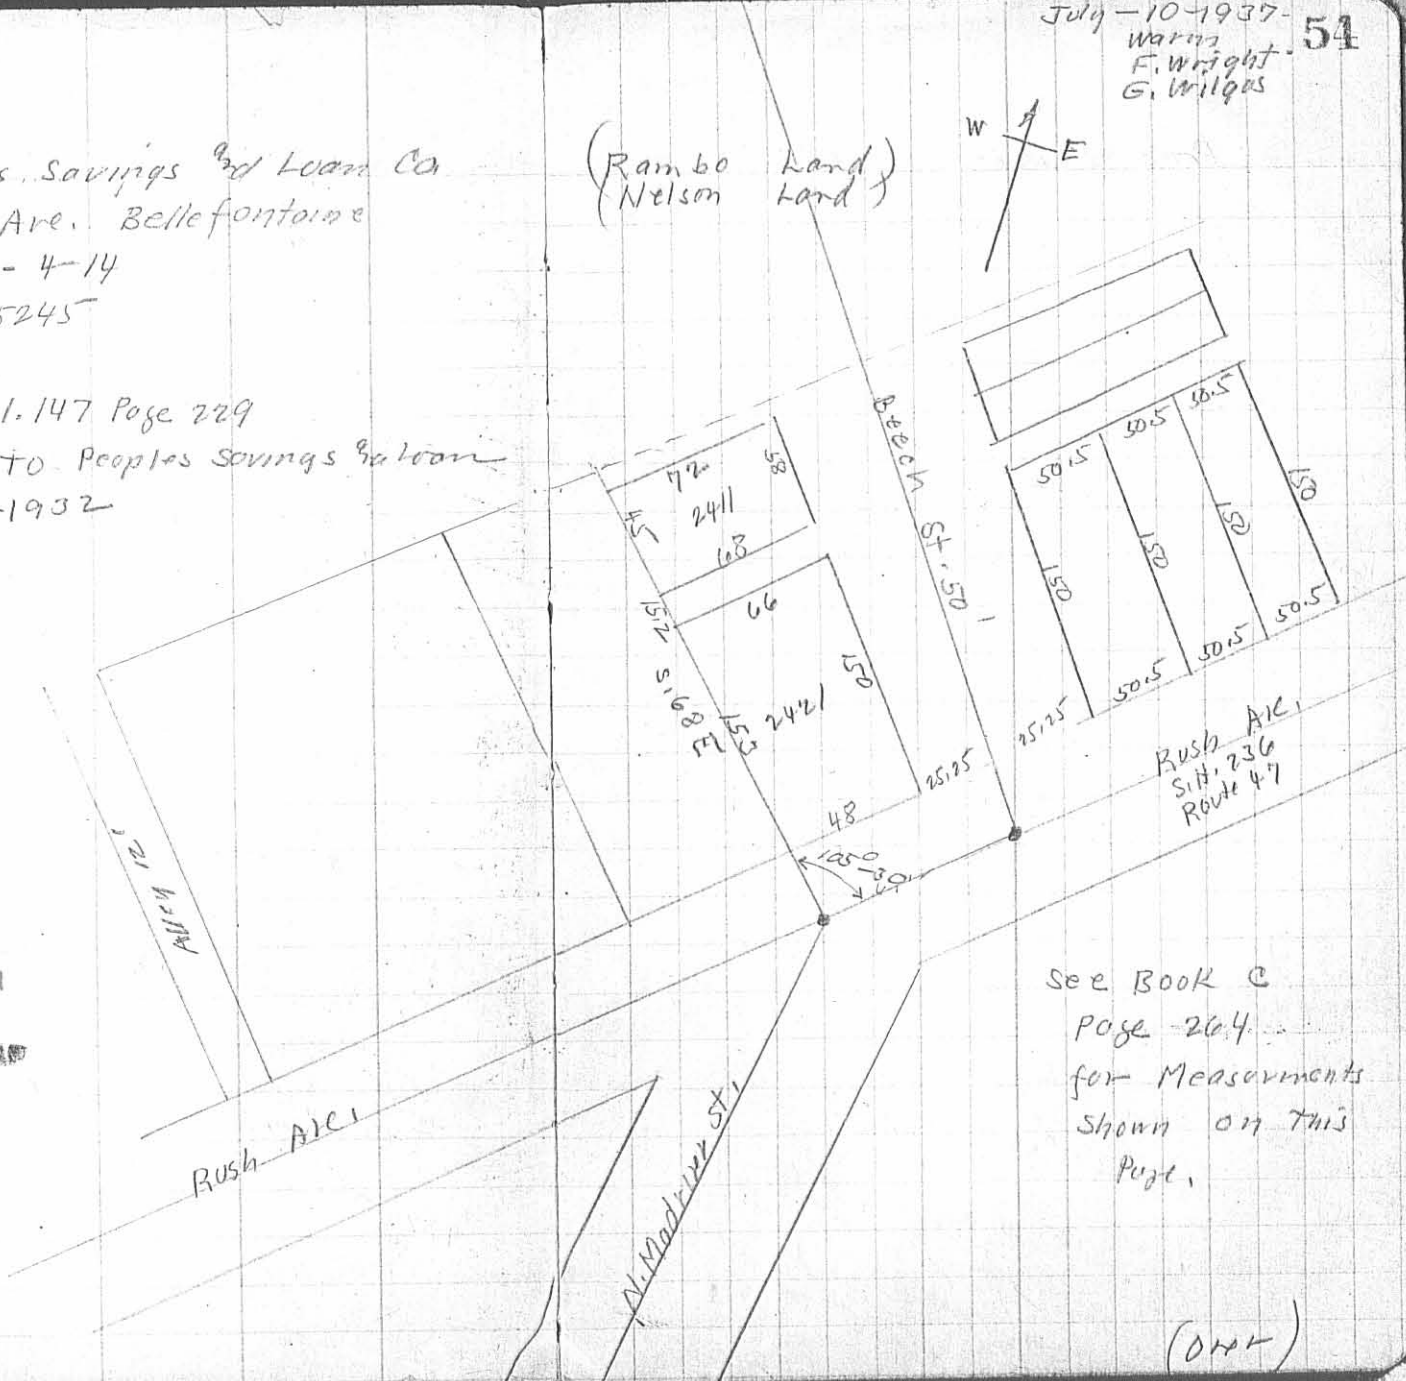 July-10-1937- 54
Warm
F. Wright.
G. Wilgus
W E
s. Savings and Loan Co
Ave. Bellefontaine
- 4-14
5245
1.147 Page 229
to Peoples Savings & Loan
-1932
(Rambo Land)
(Nelson Land)
Beech St. 50'
72
58
2411
45
68
15.2
66
S. 68 E
153
2421
150
48
25.25
25.25
50.5
50.5
50.5
150
150
150
150
50.5
50.5
50.5
Rush Ave.
S.H. 236
Route 47
Alley 12'
Rush Ave.
N. Madriver St.
See Book C
Page 264
for Measurments
Shown on This
Page.
(Over)